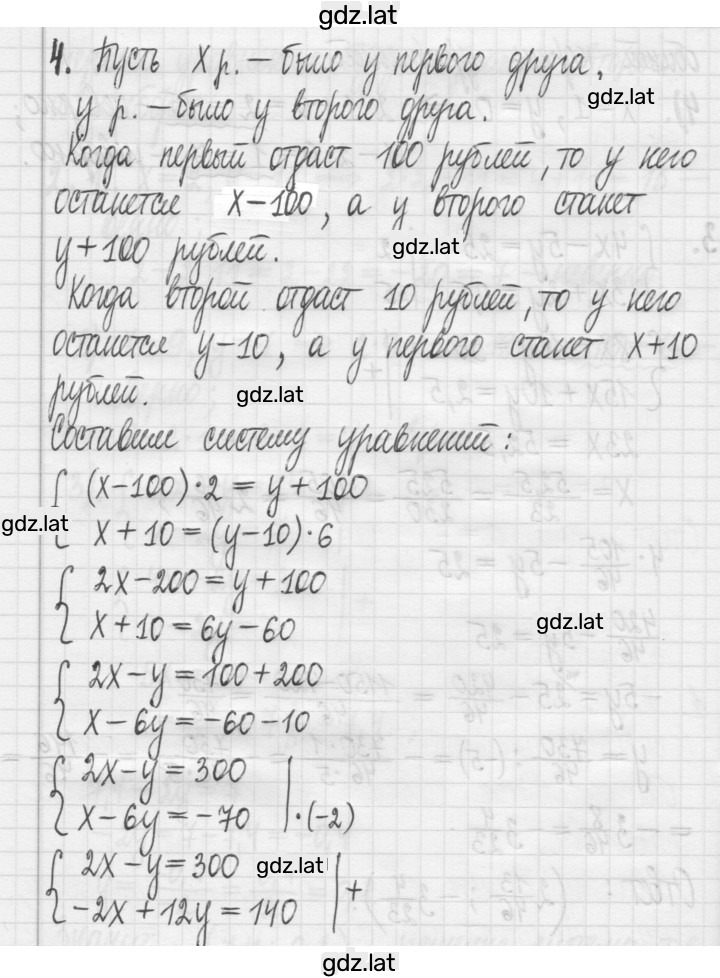 gdz.lat
4. Пусть x р. – было у первого друга,
y р. – было у второго друга.
gdz.lat
Когда первый отдаст 100 рублей, то у него
останется x–100, а у второго станет
y+100 рублей.
gdz.lat
Когда второй отдаст 10 рублей, то у него
останется y–10, а у первого станет x+10
рублей.
gdz.lat
Составим систему уравнений:
{ (x–100)·2 = y+100
gdz.lat
x+10 = (y–10)·6
{ 2x–200 = y+100
x+10 = 6y–60
gdz.lat
{ 2x–y = 100+200
x–6y = –60–10
{ 2x–y = 300
x–6y = –70 |·(–2)
{ 2x–y = 300 gdz.lat
–2x+12y = 140 | +
gdz.lat